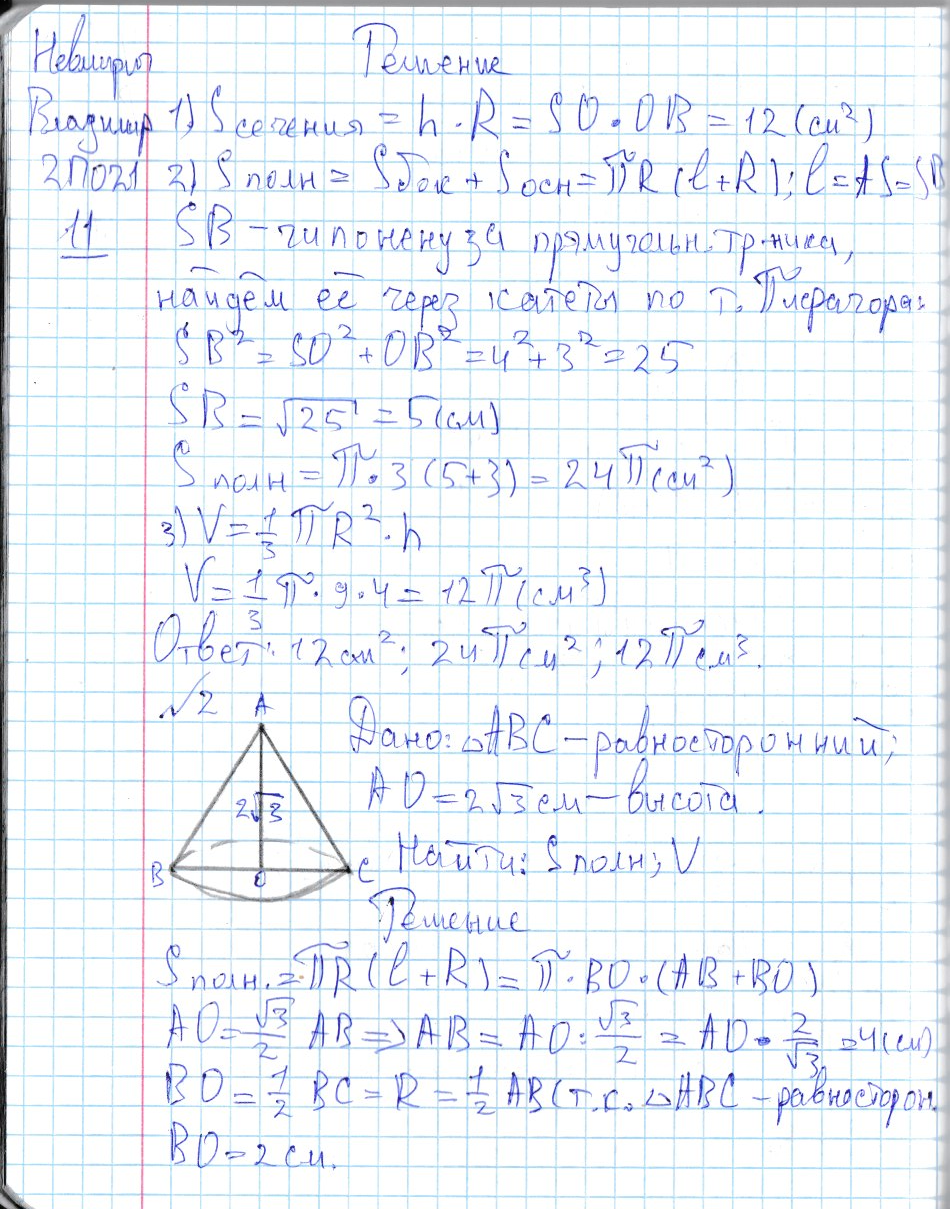 Решение
Владимир
2ПО21
11
1) Sсечения = h · R = SO · OB = 12 (см²)
2) Sполн = Sбок + Sосн = πR (l + R); l = AS = SB
SB – гипоненуза прямугольн. тр-ника,
найдём её через катеты по т. Пифагора:
SB² = SO² + OB² = 4² + 3² = 25
SB = √25 = 5 (см)
Sполн = π · 3 (5+3) = 24π (см²)
3) V = 1/3 πR² · h
V = 1/3 π · 9 · 4 = 12π (см³)
Ответ: 12 см²; 24π см²; 12π см³.
√2
A
2√3
B
O
C
Дано: △ABC – равносторонний;
AO = 2√3 см – высота.
Найти: Sполн; V
Решение
Sполн. = πR (l + R) = π · BO · (AB + BO)
AO = √3/2 AB => AB = AO : √3/2 = AO · 2/√3 = 4 (см)
BO = 1/2 BC = R = 1/2 AB (т.к. △ABC – равносторон.
BO = 2 см.